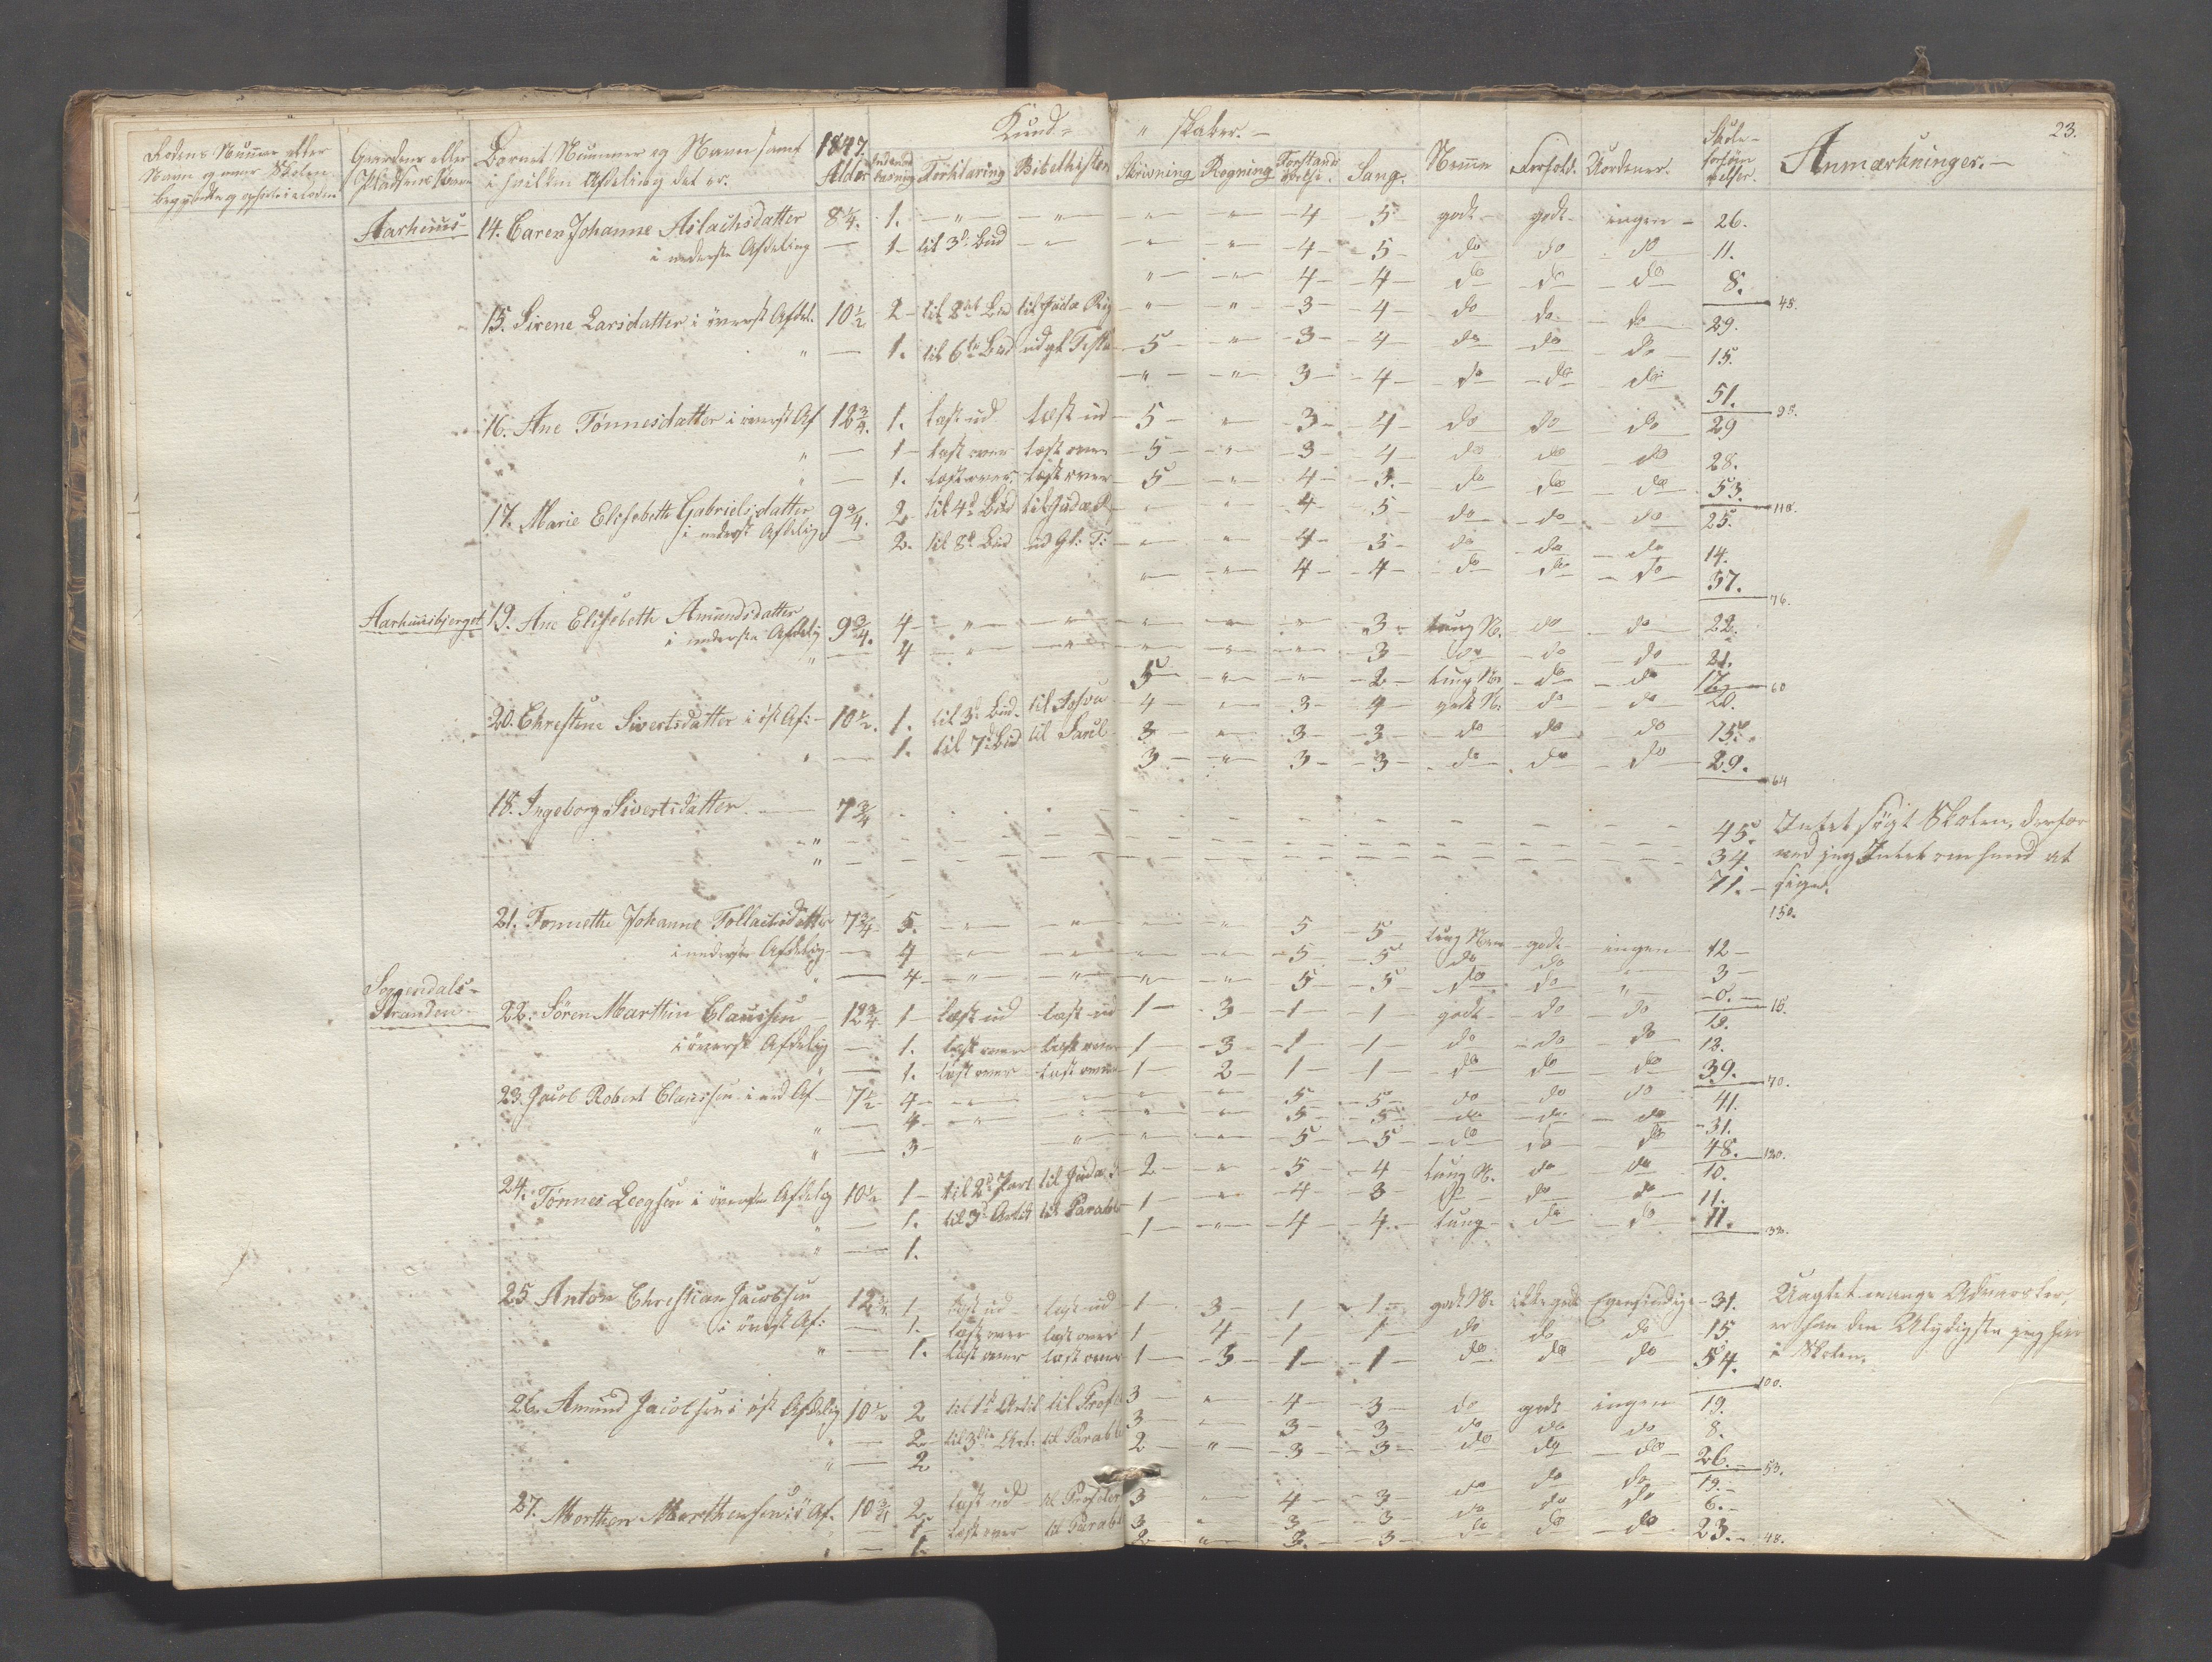 Kund= " skaber.—
23.
Rodens Nummer eller
Navn og naar Skolen
Gaardens eller
Pladsens Navn
Barnets Nummer og Navn samt
i hvilken Afdeling det er.
1847.
Alder
Forklaring Bibelhistor Skrivning Regning Sang. Nemme Forhold. Uordener. Skole-
forsøm
melser. Anmærkninger.—
Aarhuus- 14. Caren Johanne Aslachsdatter 8¼. 1. — " — — " — — " — — " — 4 — 5 godt godt ingen 26.
i nederste Afdeling — 1 til 3d. Bud — " — — " — — " — 4 — 5 do do do 11.
— " — — " — 4 — 4 do do do 8.
45.
15. Sirene Larsdatter i øverst Afdel. 10½ 2 til 8de Bud til Juda Rig — " — — " — 3 — 4 do do do 29.
" — 1. til 6te Bud 5 — " — 3 — 4 do do do 15.
— " — — " — 3 — 4 do do do 51.
95.
16. Ane Tönnesdatter i øverst Af 12¾. 1. læst ud læst ud 5 — " — 3 — 4 do do do 29
" — 1 læst over læst over 5 — " — 3 — 4 do do do 28.
" — 1. læst over læst over 5 — " — 4 — 3. do do do 53.
110.
17. Marie Elisebeth Gabrielsdatter 9¾. 2 til 4d Bud til Juda R — " — — " — 4 — 5 do do do 25.
i nederst Afdelig — 2. til 8d Bud ud Gl: T: — " — — " — 4 — 5 do do do 14.
— " — — " — 4 — 4 do do do 37.
76.
Aarhuusbjerget 19. Ane Elisebeth Amundsdatter 9¾. 4 — " — — " — — " — — " — — " — 3 tung N. do do 22.
i nederste Afdelig
" — 4 — " — — " — — " — — " — — " — 3 do do do 21.
5 — " — — " — 2 tung N. do do 17
60
20. Chrestine Sivertsdatter i øst Af: 10½. 1. til 3d Bud. til Josva 4 — " — 3 — 4 godt N. do do 20.
" — 1. til 7d Bud til Saul 3 — " — 3 — 3 do do do 15.
3 — " — 3 — 3 do do do 29.
64
18. Ingeborg Sivertsdatter 7¾ 45. Intet søgt Skolen, derfor
" — 34. ved jeg Intet om hend at
" — 71. sige.
150.
21. Tonnette Johanne Tollaksdatter 7¾ 5. — " — — " — — " — 5 — 5 tung Nem godt ingen 12
i nederste Afdelig — 4 — " — — " — — " — — " — 5 — 5 do do " 3
" — 4 — " — — " — — " — — " — 5 — 5 do do " 0.
15.
Soggendals-
Stranden 22. Søren Marthin Claussen 12¾ 1 læst ud læst ud 1 — 3 — 1 — 1 godt do do 18.
i øverst Afdelig — 1. læst over læst over 1 — 3 — 1 — 1 do do do 13.
" — 1. læst over læst over 1 — 2 — 1 — 1 do do do 39.
70.
23. Jacob Robert Claussen i ned Af 7½ 4 — " — — " — — " — — " — 5 — 5 do do do 41.
" — 4 — " — — " — — " — — " — 5 — 5 do do do 31.
" — 3 — " — — " — — " — 5 — 5 do do do 48.
120.
24. Tönnes Leegsen i øverste Afdelg 10½ 1 til 2d Part til Juda 2 — " — 5 — 4 tung N. do do 10.
" — 1. til 3d Artik til Parabl 1 — " — 4 — 3 do do do 11.
" — 1. 1 — " — 4 — 4 tung do do 11.
32.
25 Anton Christian Jacobsen 12½ 1 læst ud læst ud 1 — 3 — 1 — 1 godt N. ikke godt Egensindig 31. Uagtet mange Advarsler,
i øverst Af: — 1. læst over læst over 1 — 4 — 1 — 1 do do do 15 er han den Ulydigste jeg har
" — 1. læst over læst over 1 — 3 — 1 — 1 do do do 54. i Skolen.
100.
26. Amund Jacobsen i øst Afdelig 10½ 2 til 1d Artik til Profet 3 — " — 4 — 3 do godt ingen 19.
" — 2 til 3die Art: til Parabl 3 — " — 3 — 3 do do do 8.
" — 2 2 — " — 3 — 3 do do do 26.
53.
27. Morthen Marthensen i ö Af. 10¾ 2 læst ud til Profeter 3 — " — 4 — 3 do do do 19.
" — 1 læst over til Parabl 3 — " — 3 — 3 do do do 6.
" — 1. 2 — " — 3. — 3 do do do 23.
48.